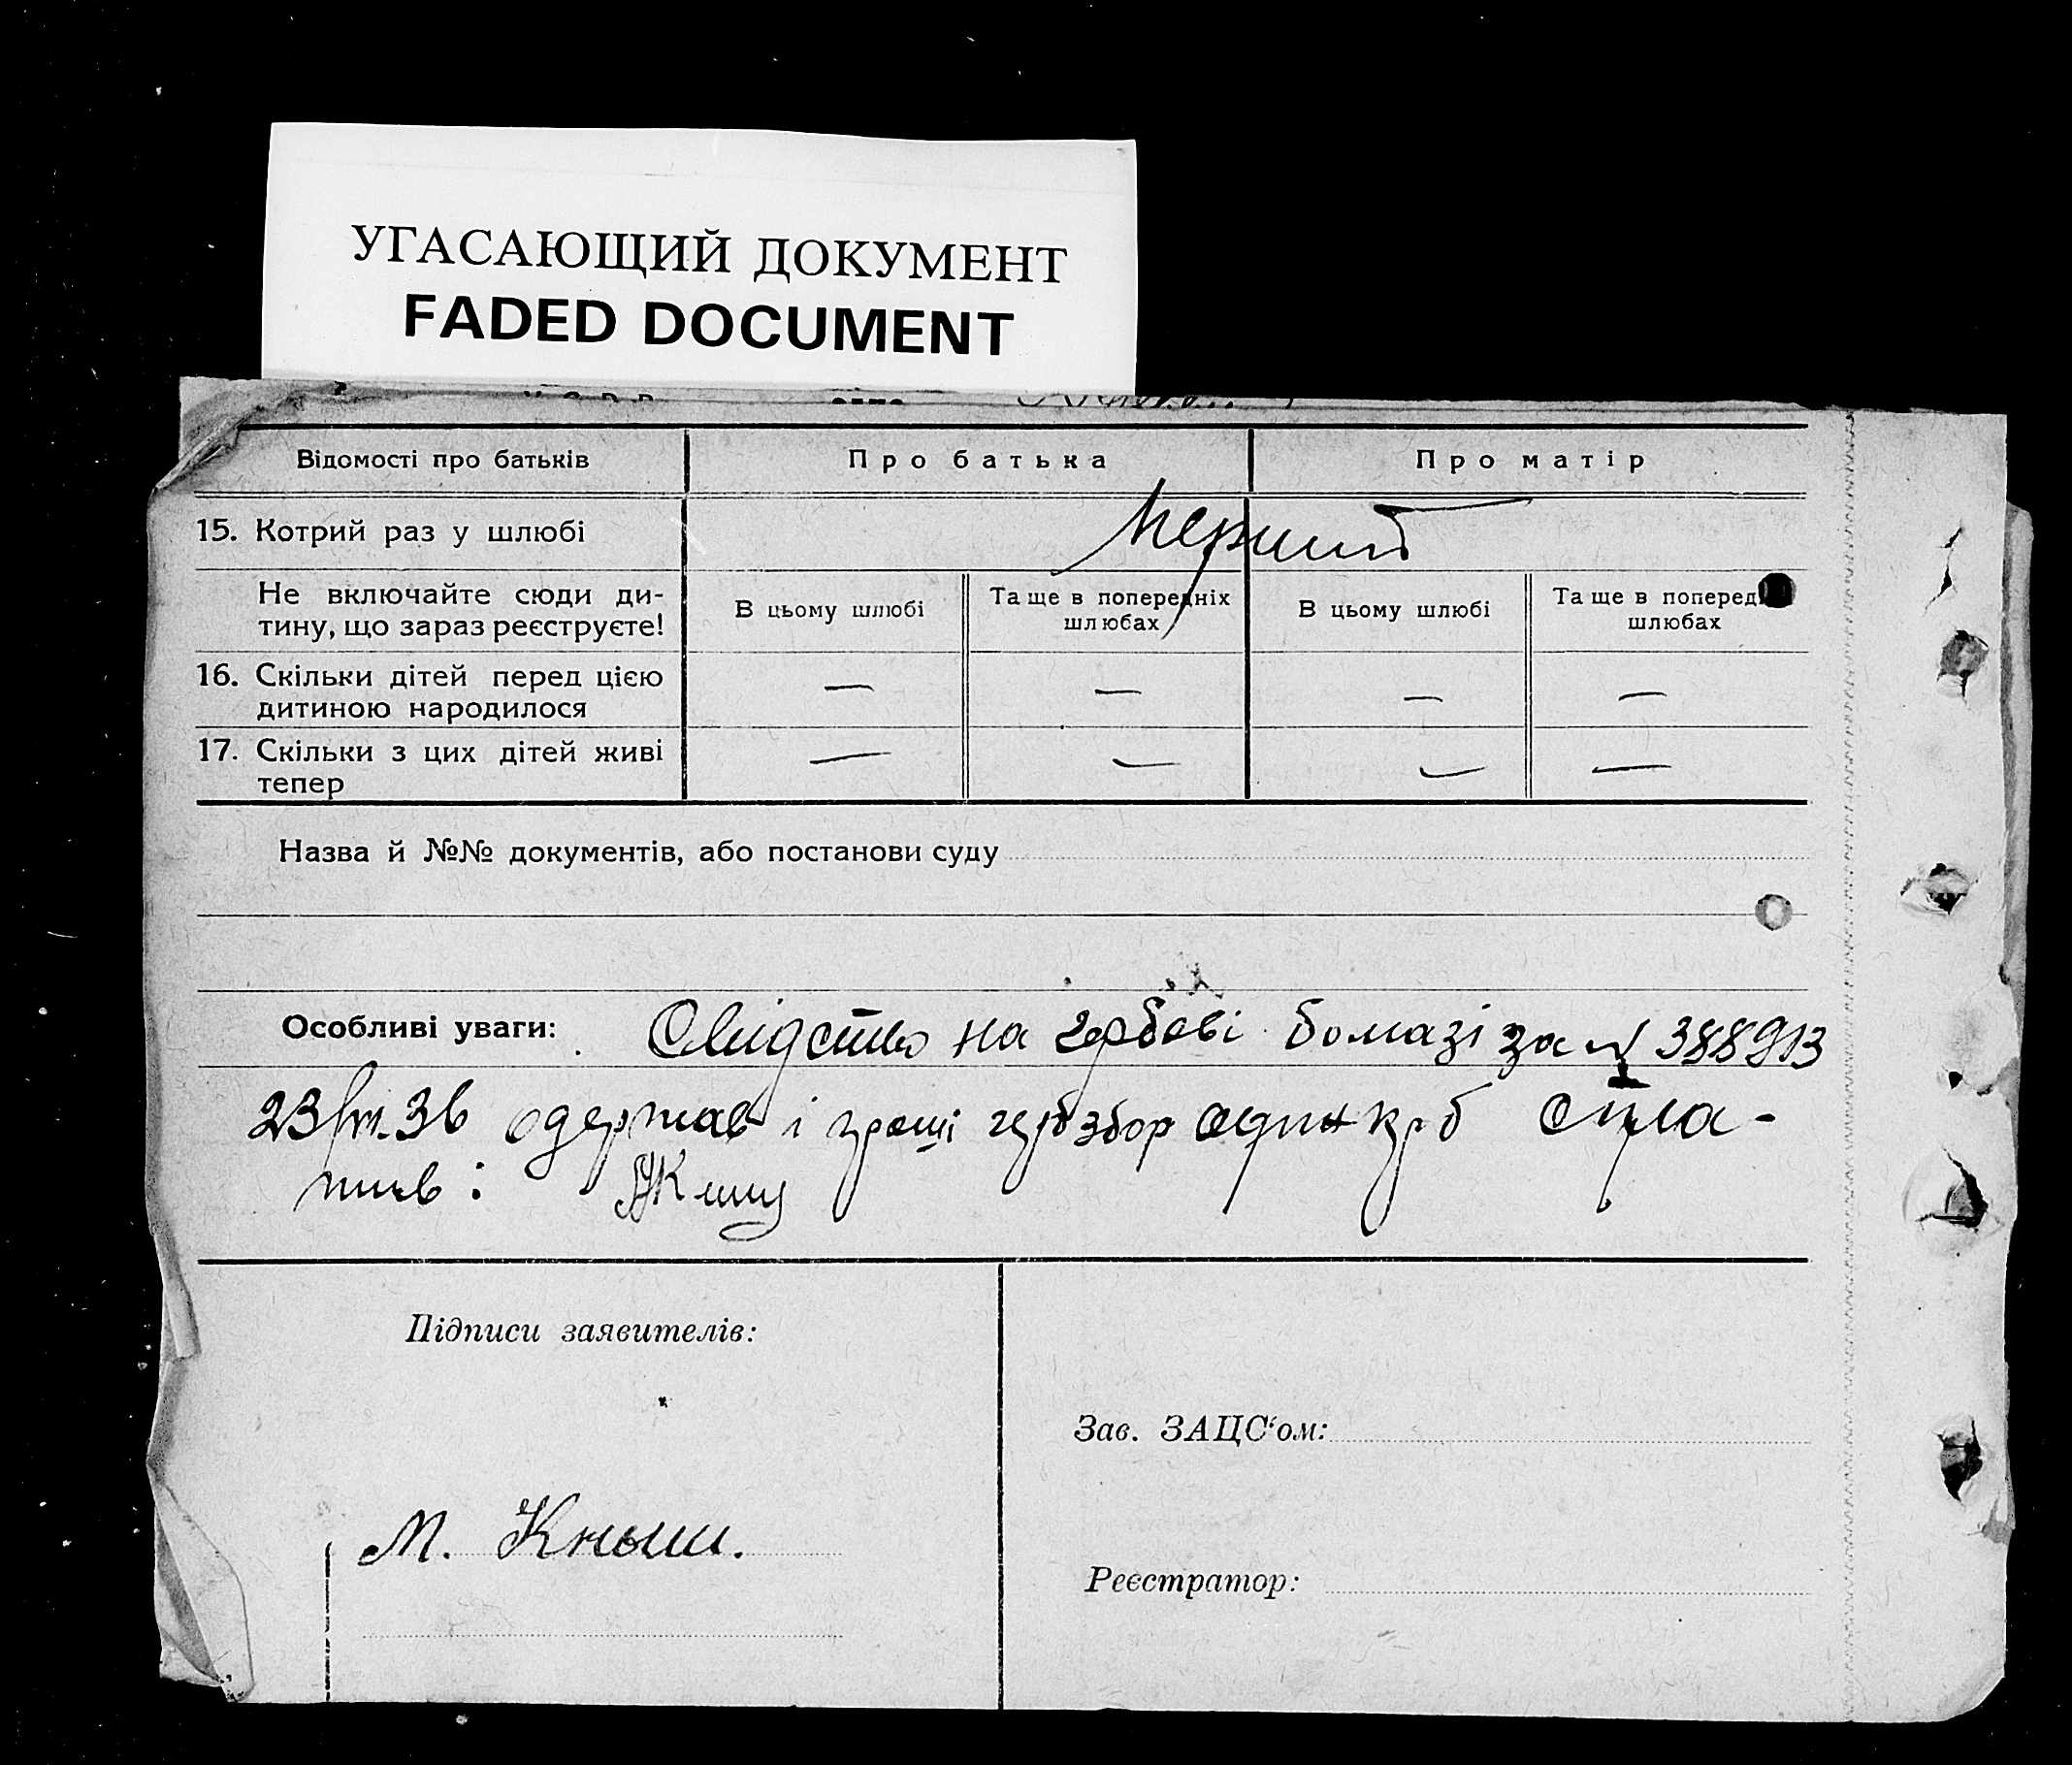 УГАСАЮЩИЙ ДОКУМЕНТ
FADED DOCUMENT
Відомості про батьків
Про батька
Про матір
15. Котрий раз у шлюбі
перший
Не включайте сюди ди-
тину, що зараз реєструєте!
В цьому шлюбі
Та ще в попередніх
шлюбах
В цьому шлюбі
Та ще в поперед
шлюбах
16. Скільки дітей перед цією
дитиною народилося
— — — —
17. Скільки з цих дітей живі
тепер
— — — —
Назва й №№ документів, або постанови суду
Особливі уваги: Свідство на гербові бомазі за № 388913
23/VI.36 одержав і гроші герб збор один крб опла-
тив:
Підписи заявителів:
Зав. ЗАЦС‘ом:
М. Кныш.
Реєстратор: